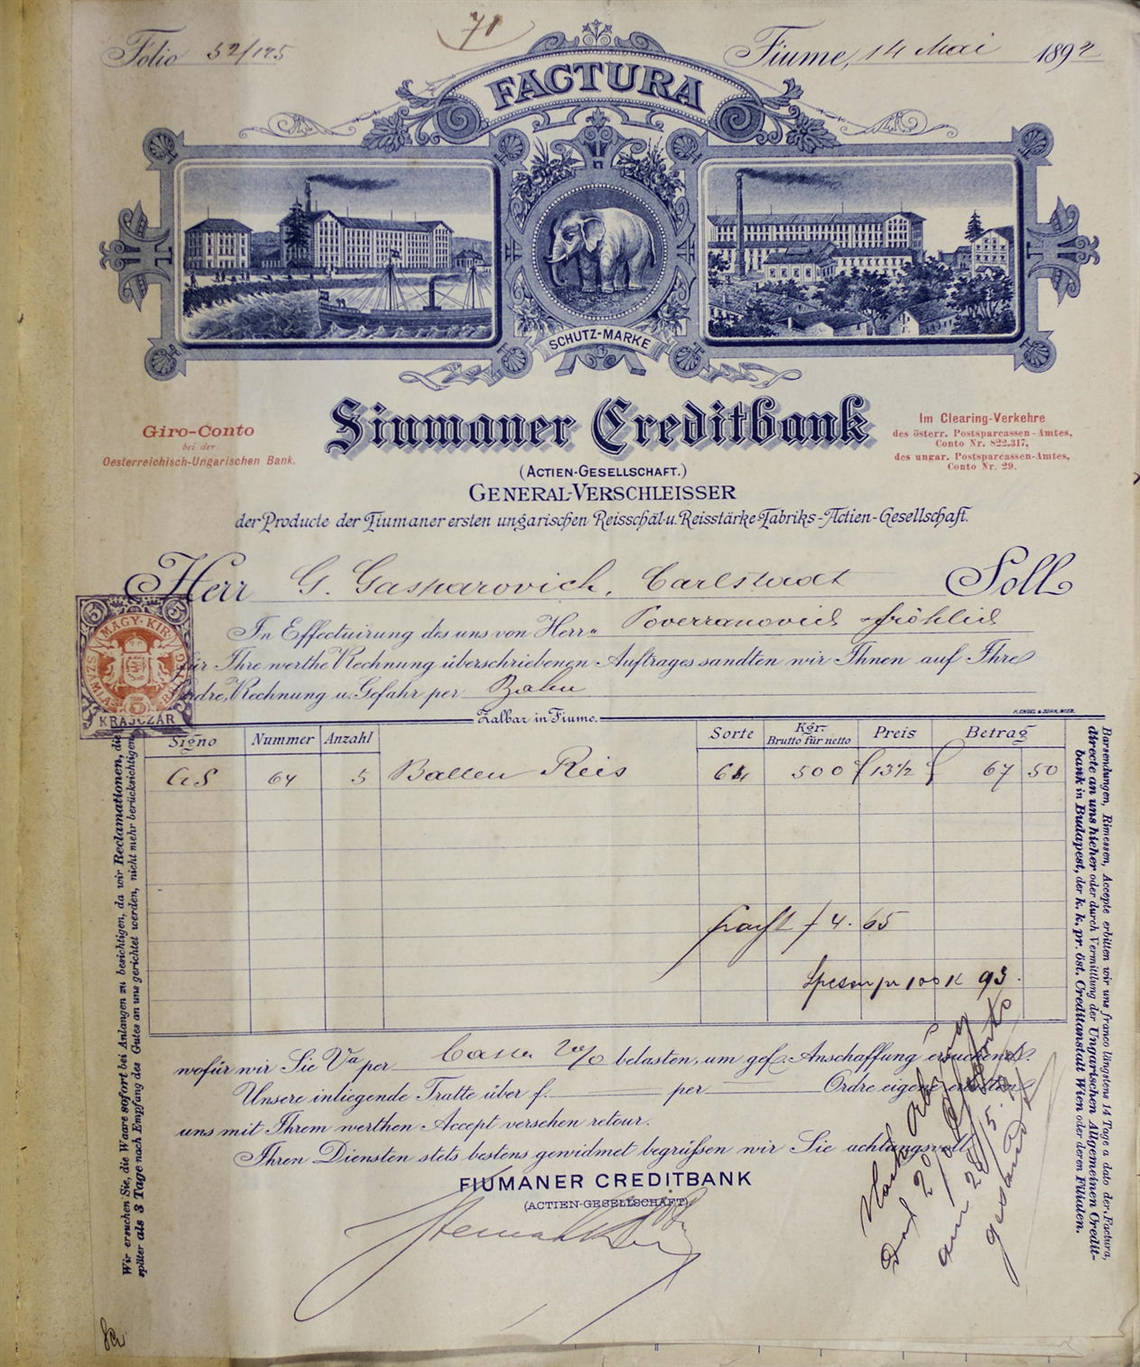 71
Folio 52/125
Fiume, 14 Mai 1892
FACTURA
SCHUTZ-MARKE
Giro-Conto
bei der
Oesterreichisch-Ungarischen Bank.
Fiumaner Creditbank
(ACTIEN-GESELLSCHAFT.)
GENERAL-VERSCHLEISSER
der Producte der Fiumaner ersten ungarischen Reisschäl-u. Reisstärke-Fabriks-Actien-Gesellschaft.
Im Clearing-Verkehre
des österr. Postsparcassen-Amtes,
Conto Nr. 822.317,
des ungar. Postsparcassen-Amtes,
Conto Nr. 29.
Herr G. Gasparovich, Carlstadt Soll
In Effectuirung des uns von Herrn Poverranovich Fröhlich
für Ihre werthe Rechnung überschriebenen Auftrages sandten wir Ihnen auf Ihre
Ordre, Rechnung u. Gefahr per Bahn
MAGY. KIR.
5 KRAJCZÁR
Zalbar in Fiume.
Signo Nummer Anzahl Sorte Kgr. Brutto für netto Preis Betrag
GS 64 5 Ballen Reis 500 13½ 67 50
Fracht f 4.65
Spesen pr 100 K 93
wofür wir Sie Va per Cassa 2% belasten, um gef. Anschaffung ersuchend.
Unsere inliegende Tratte über f. per Ordre eigene erbitten
uns mit Ihrem werthen Accept versehen retour.
Ihren Diensten stets bestens gewidmet begrüßen wir Sie achtungsvoll
FIUMANER CREDITBANK
(ACTIEN-GESELLSCHAFT)
Nach Abzug
2%
am 28/5.
gesandt
Wir ersuchen Sie, die Waare sofort bei Anlangen zu besichtigen, da wir Reclamationen, die
später als 3 Tage nach Empfang des Gutes an uns gerichtet werden, nicht mehr berücksichtigen
Barsendungen, Rimessen, Accepte erbitten wir uns franco längstens 14 Tage a dato der Factura,
directe an uns hieher oder durch Vermittlung der Ungarischen Allgemeinen Credit-
bank in Budapest, der k. k. pr. öst. Creditanstalt Wien oder deren Filialen.